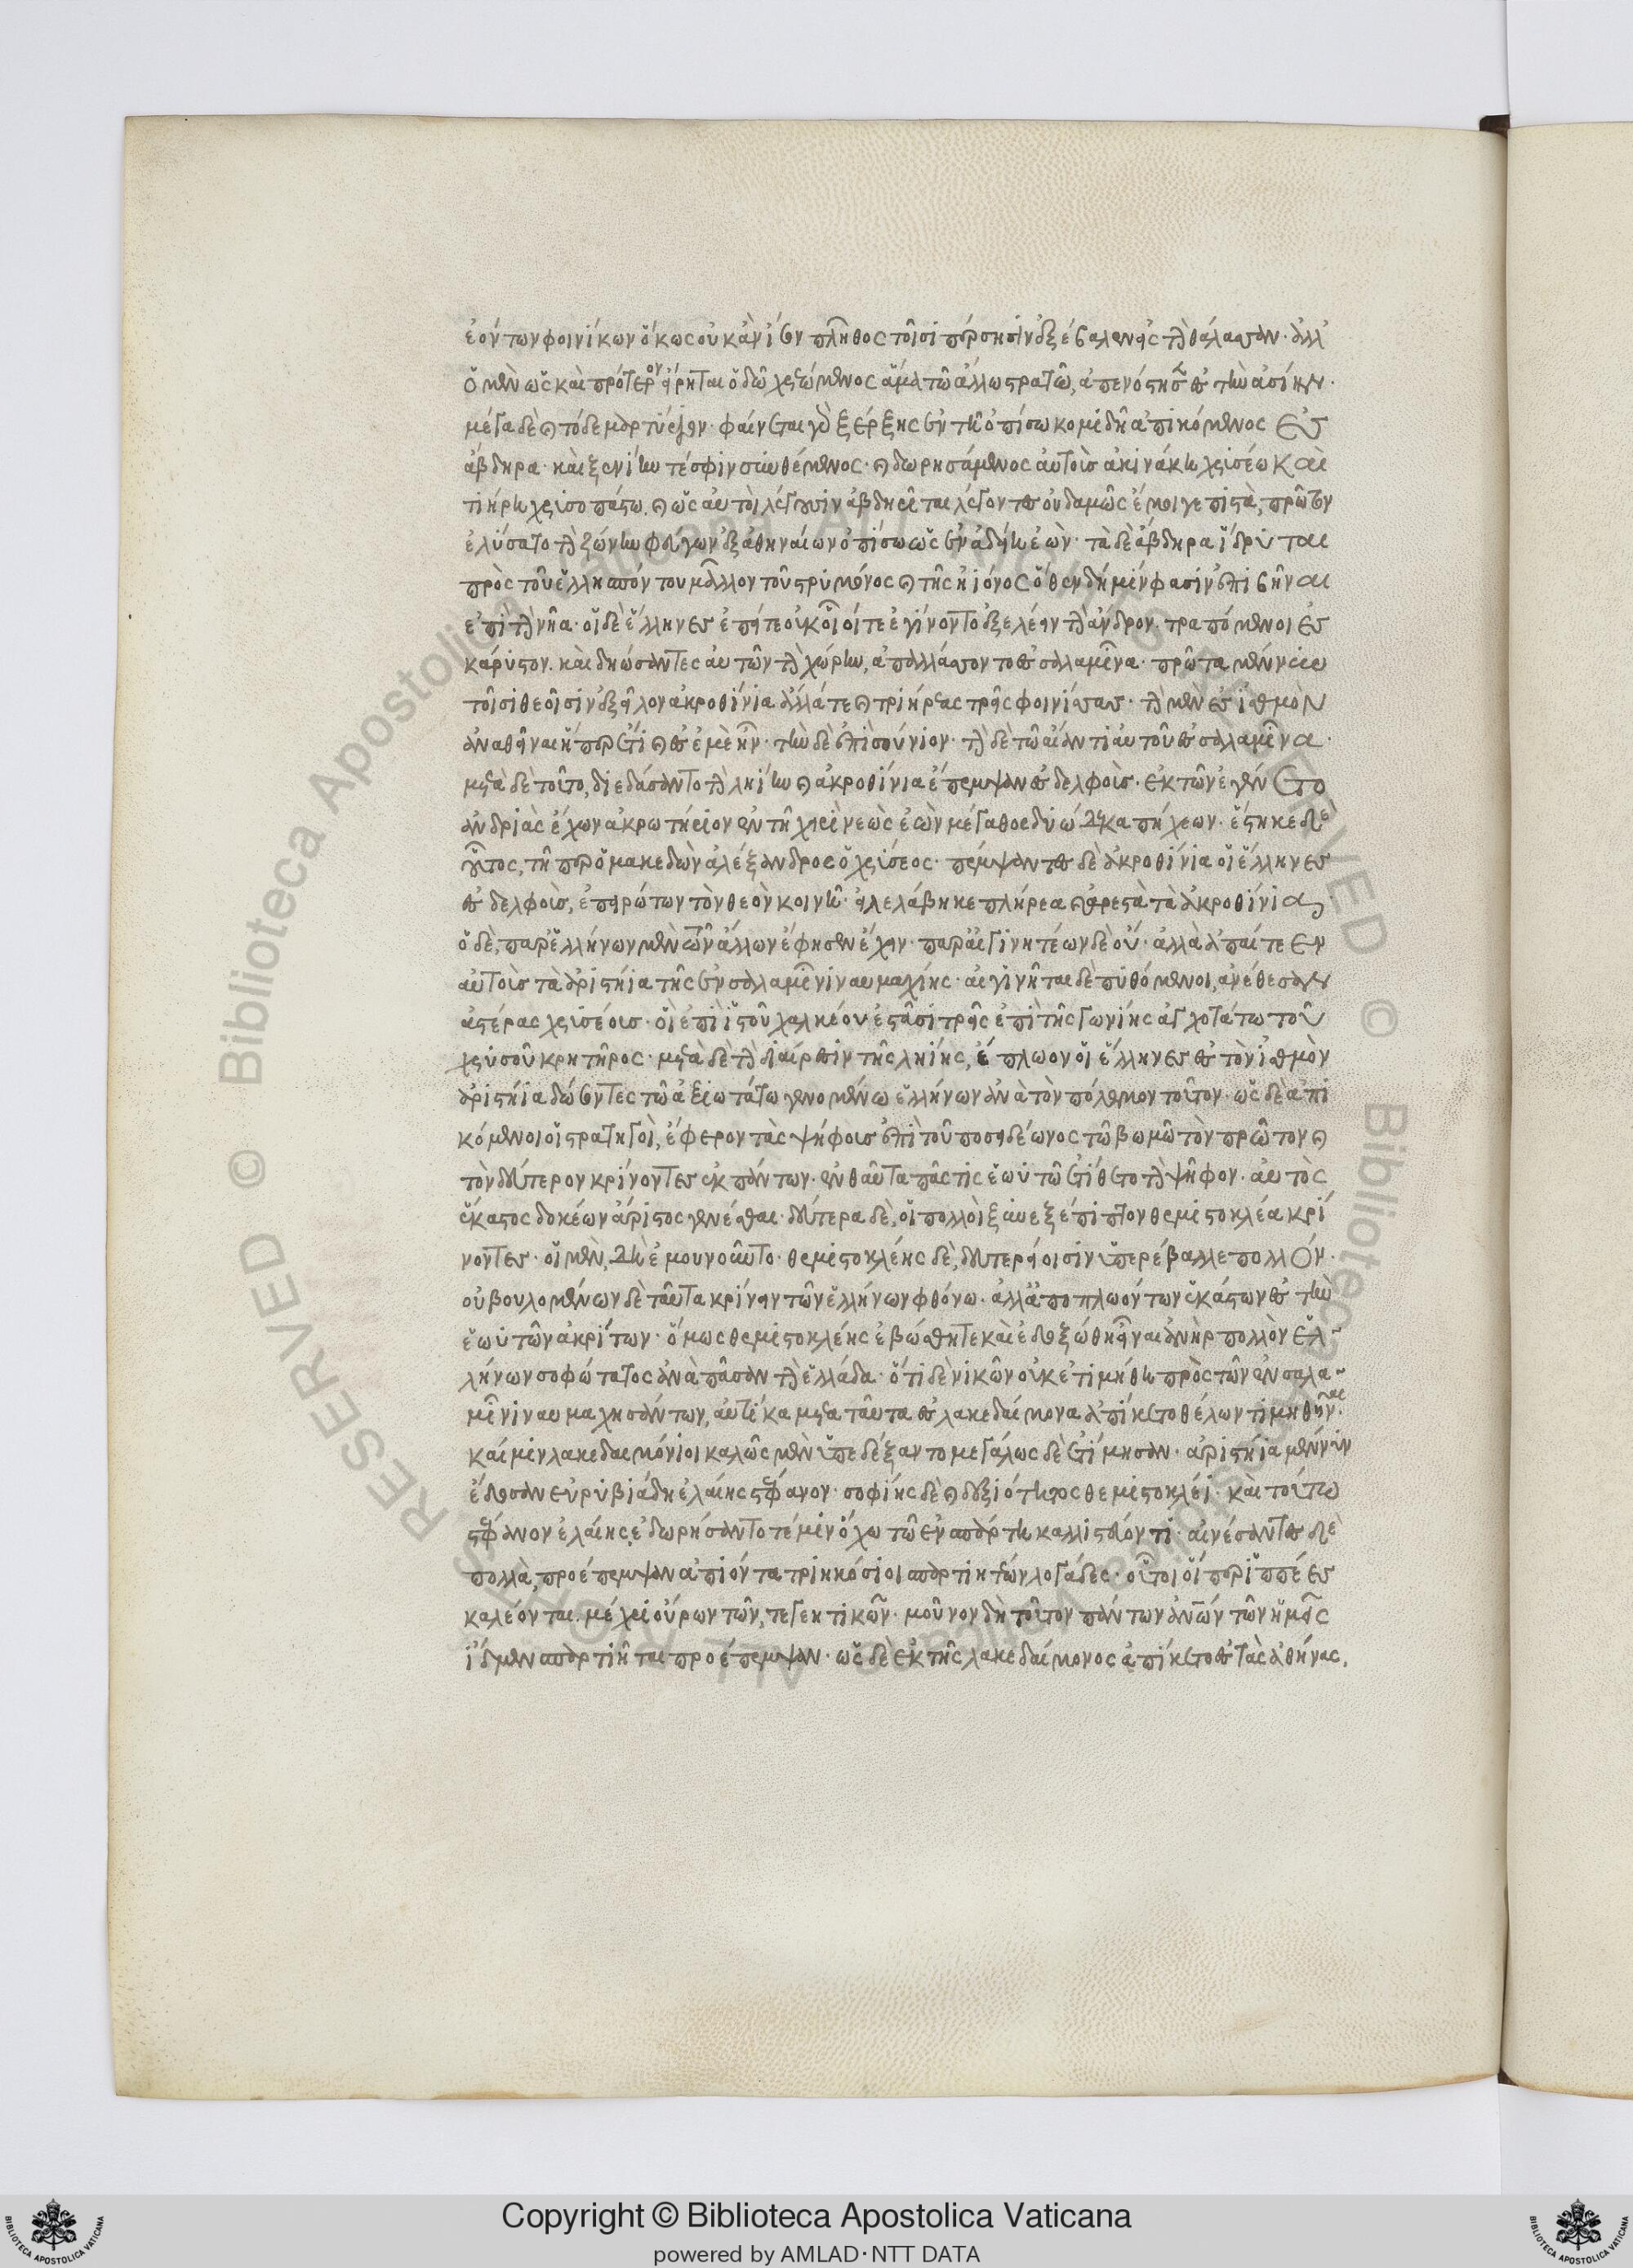 ἐόντων φοινίκων ὅκως οὐκ ἂν ἴσον πλῆθος τοῖσι πέρσησιν ἐξέβαλεν εἰς τὴν θάλασσαν· ἀλλ'
ὁ μὲν ὡς καὶ πρότερον εἴρηται ὁδῷ χρεώμενος ἅμα τῷ ἄλλῳ στρατῷ, ἀπενόστησε ἐς τὴν ἀσίην·
μέγα δὲ καὶ τόδε μαρτύριον· φαίνεται γὰρ ξέρξης ἐν τῇ ὀπίσω κομιδῇ ἀπικόμενος ἐς
ἄβδηρα· καὶ ξενίην τέ σφιν συνθέμενος· καὶ δωρησάμενος αὐτοὺς ἀκινάκῃ χρυσέῳ καὶ
τιήρῃ χρυσοπάστῳ. καὶ ὡς αὐτοὶ λέγουσιν ἀβδηρῖται λέγοντες οὐδαμῶς ἔμοιγε πιστὰ, πρῶτον
ἐλύσατο τὴν ζώνην φεύγων ἐξ ἀθηναίων ὀπίσω ὡς ἐν ἀδείῃ ἐών· τὰ δὲ ἄβδηρα ἵδρυται
πρὸς τοῦ ἑλλησπόντου μᾶλλον τοῦ στρυμόνος καὶ τῆς ἠιόνος ὅθεν δή μίν φασιν ἐπιβῆναι
ἐπὶ τὴν νῆα· οἱ δὲ ἕλληνες ἐπείτε οὐκ οἷοί τε ἐγίνοντο ἐξελέειν τὴν ἄνδρον. τραπόμενοι ἐς
κάρυστον. καὶ δηιώσαντες αὐτῶν τὴν χώρην, ἀπαλλάσσοντο ἐς σαλαμῖνα· πρῶτα μέν νυν
τοῖσι θεοῖσιν ἐξεῖλον ἀκροθίνια ἄλλά τε καὶ τριήρεας τρεῖς φοινίσσας· τὴν μὲν ἐς ἰσθμὸν
ἀναθεῖναι ἥπερ ἔτι καὶ ἐς ἐμὲ ἦν· τὴν δὲ ἐπὶ σούνιον· τὴν δὲ τῷ αἴαντι αὐτοῦ ἐς σαλαμῖνα·
μετὰ δὲ τοῦτο, διεδάσαντο τὴν ληίην καὶ ἀκροθίνια ἔπεμψαν ἐς δελφούς· ἐκ τῶν ἐγένετο
ἀνδριὰς ἔχων ἀκρωτήριον ἐν τῇ χειρὶ νεὼς ἐὼν μέγαθος δυώδεκα πήχεων· ἕστηκε δὲ
οὗτος, τῇ περ ὁ μακεδὼν ἀλέξανδρος ὁ χρύσεος· πέμψαντες δὲ ἀκροθίνια οἱ ἕλληνες
ἐς δελφούς, ἐπειρώτων τὸν θεὸν κοινῇ· εἰ λελάβηκε πλήρεα καὶ ἀρεστὰ τὰ ἀκροθίνια,
ὁ δὲ, παρ' ἑλλήνων μὲν τῶν ἄλλων ἔφησεν ἔχειν· παρ' αἰγινητέων δὲ οὔ· ἀλλὰ ἀπαίτεεν
αὐτοὺς τὰ ἀριστήια τῆς ἐν σαλαμῖνι ναυμαχίης· αἰγινῆται δὲ πυθόμενοι, ἀνέθεσαν
ἀστέρας χρυσέους· οἳ ἐπὶ ἱστοῦ χαλκέου ἑστᾶσι τρεῖς ἐπὶ τῆς γωνίης ἀγχοτάτω τοῦ
χρυσοῦ κρητῆρος· μετὰ δὲ τὴν διαίρεσιν τῆς ληίης, ἔπλωον οἱ ἕλληνες ἐς τὸν ἰσθμὸν
ἀριστήια δώσοντες τῷ ἀξιωτάτῳ γενομένῳ ἑλλήνων ἀνὰ τὸν πόλεμον τοῦτον· ὡς δὲ ἀπι
κόμενοι οἱ στρατηγοὶ, ἔφερον τὰς ψήφους ἐπὶ τοῦ ποσειδέωνος τῷ βωμῷ τὸν πρῶτον καὶ
τὸν δεύτερον κρίνοντες ἐκ πάντων. ἐνθαῦτα πᾶς τις ἑωυτῷ ἐτίθετο τὴν ψῆφον. αὐτὸς
ἕκαστος δοκέων ἄριστος γενέσθαι· δεύτερα δὲ, οἱ πολλοὶ ξυνεξέπιπτον θεμιστοκλέα κρί
νοντες· οἱ μὲν, δὴ ἐμουνοῦντο· θεμιστοκλέης δὲ, δευτερείοισιν ὑπερέβαλλε πολλόν·
οὐ βουλομένων δὲ ταῦτα κρίνειν τῶν ἑλλήνων φθόνῳ. ἀλλ' ἀποπλωόντων ἑκάστων ἐς τὴν
ἑωυτῶν ἀκρίτων· ὅμως θεμιστοκλέης ἐβώσθη τε καὶ ἐδοξώθη εἶναι ἀνὴρ πολλὸν ἑλ-
λήνων σοφώτατος ἀνὰ πᾶσαν τὴν ἑλλάδα· ὅτι δὲ νικῶν οὐκ ἐτιμήθη πρὸς τῶν ἐν σαλα-
μῖνι ναυμαχησάντων, αὐτίκα μετὰ ταῦτα ἐς λακεδαίμονα ἀπίκετο θέλων τιμηθῆναι·
καί μιν λακεδαιμόνιοι καλῶς μὲν ὑπεδέξαντο μεγάλως δὲ ἐτίμησαν· ἀριστήια μέν νυν
ἔδοσαν εὐρυβιάδῃ ἐλαίης στέφανον· σοφίης δὲ καὶ δεξιότητος θεμιστοκλέι· καὶ τούτῳ
στέφανον ἐλαίης, ἐδωρήσαντο τέ μιν ὄχῳ τῷ ἐν σπάρτῃ καλλιστεύοντι· αἰνέσαντες δὲ
πολλὰ, προέπεμψαν ἀπιόντα τριηκόσιοι σπαρτιητέων λογάδες· οὗτοι οἵ περ ἱππέες
καλέονται. μέχρι οὔρων τῶν, τεγεητικῶν· μοῦνον δὴ τοῦτον πάντων ἀνθρώπων τῶν ἡμεῖς
ἴδμεν σπαρτιῆται προέπεμψαν· ὡς δὲ ἐκ τῆς λακεδαίμονος ἀπίκετο ἐς τὰς ἀθήνας,
Copyright © Biblioteca Apostolica Vaticana
powered by AMLAD·NTT DATA